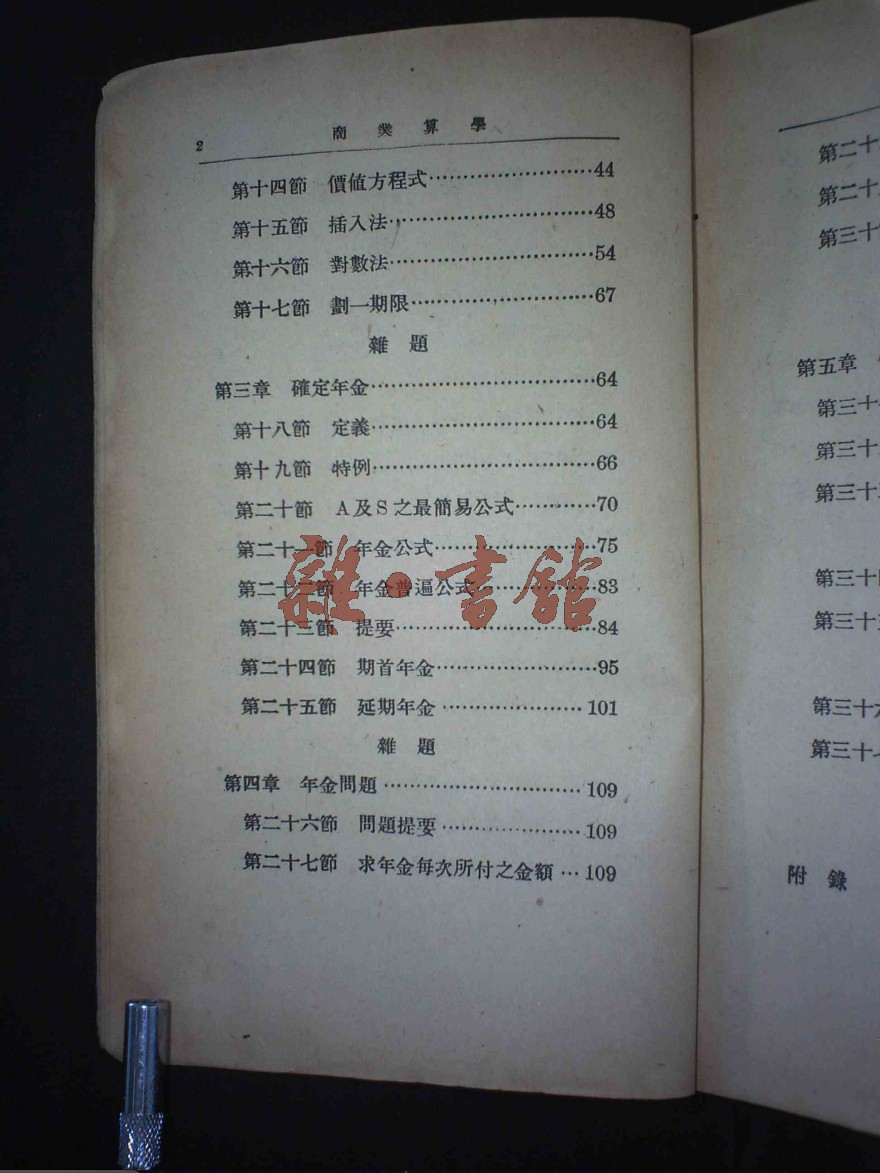 2
商業算學
第十四節 價值方程式························44
第十五節 插入法······························48
第十六節 對數法······························54
第十七節 劃一期限···························67
雜題
第三章 確定年金·································64
第十八節 定義·································64
第十九節 特例·································66
第二十節 A及S之最簡易公式············70
第二十一節 年金公式························75
第二十二節 年金普遍公式··················83
第二十三節 提要······························84
第二十四節 期首年金························95
第二十五節 延期年金·····················101
雜題
第四章 年金問題······························109
第二十六節 問題提要·····················109
第二十七節 求年金每次所付之金額···109
雜·書館
第二十
第二十
第三十
第五章
第三十
第三十
第三十
第三十四
第三十五
第三十六
第三十七
附錄